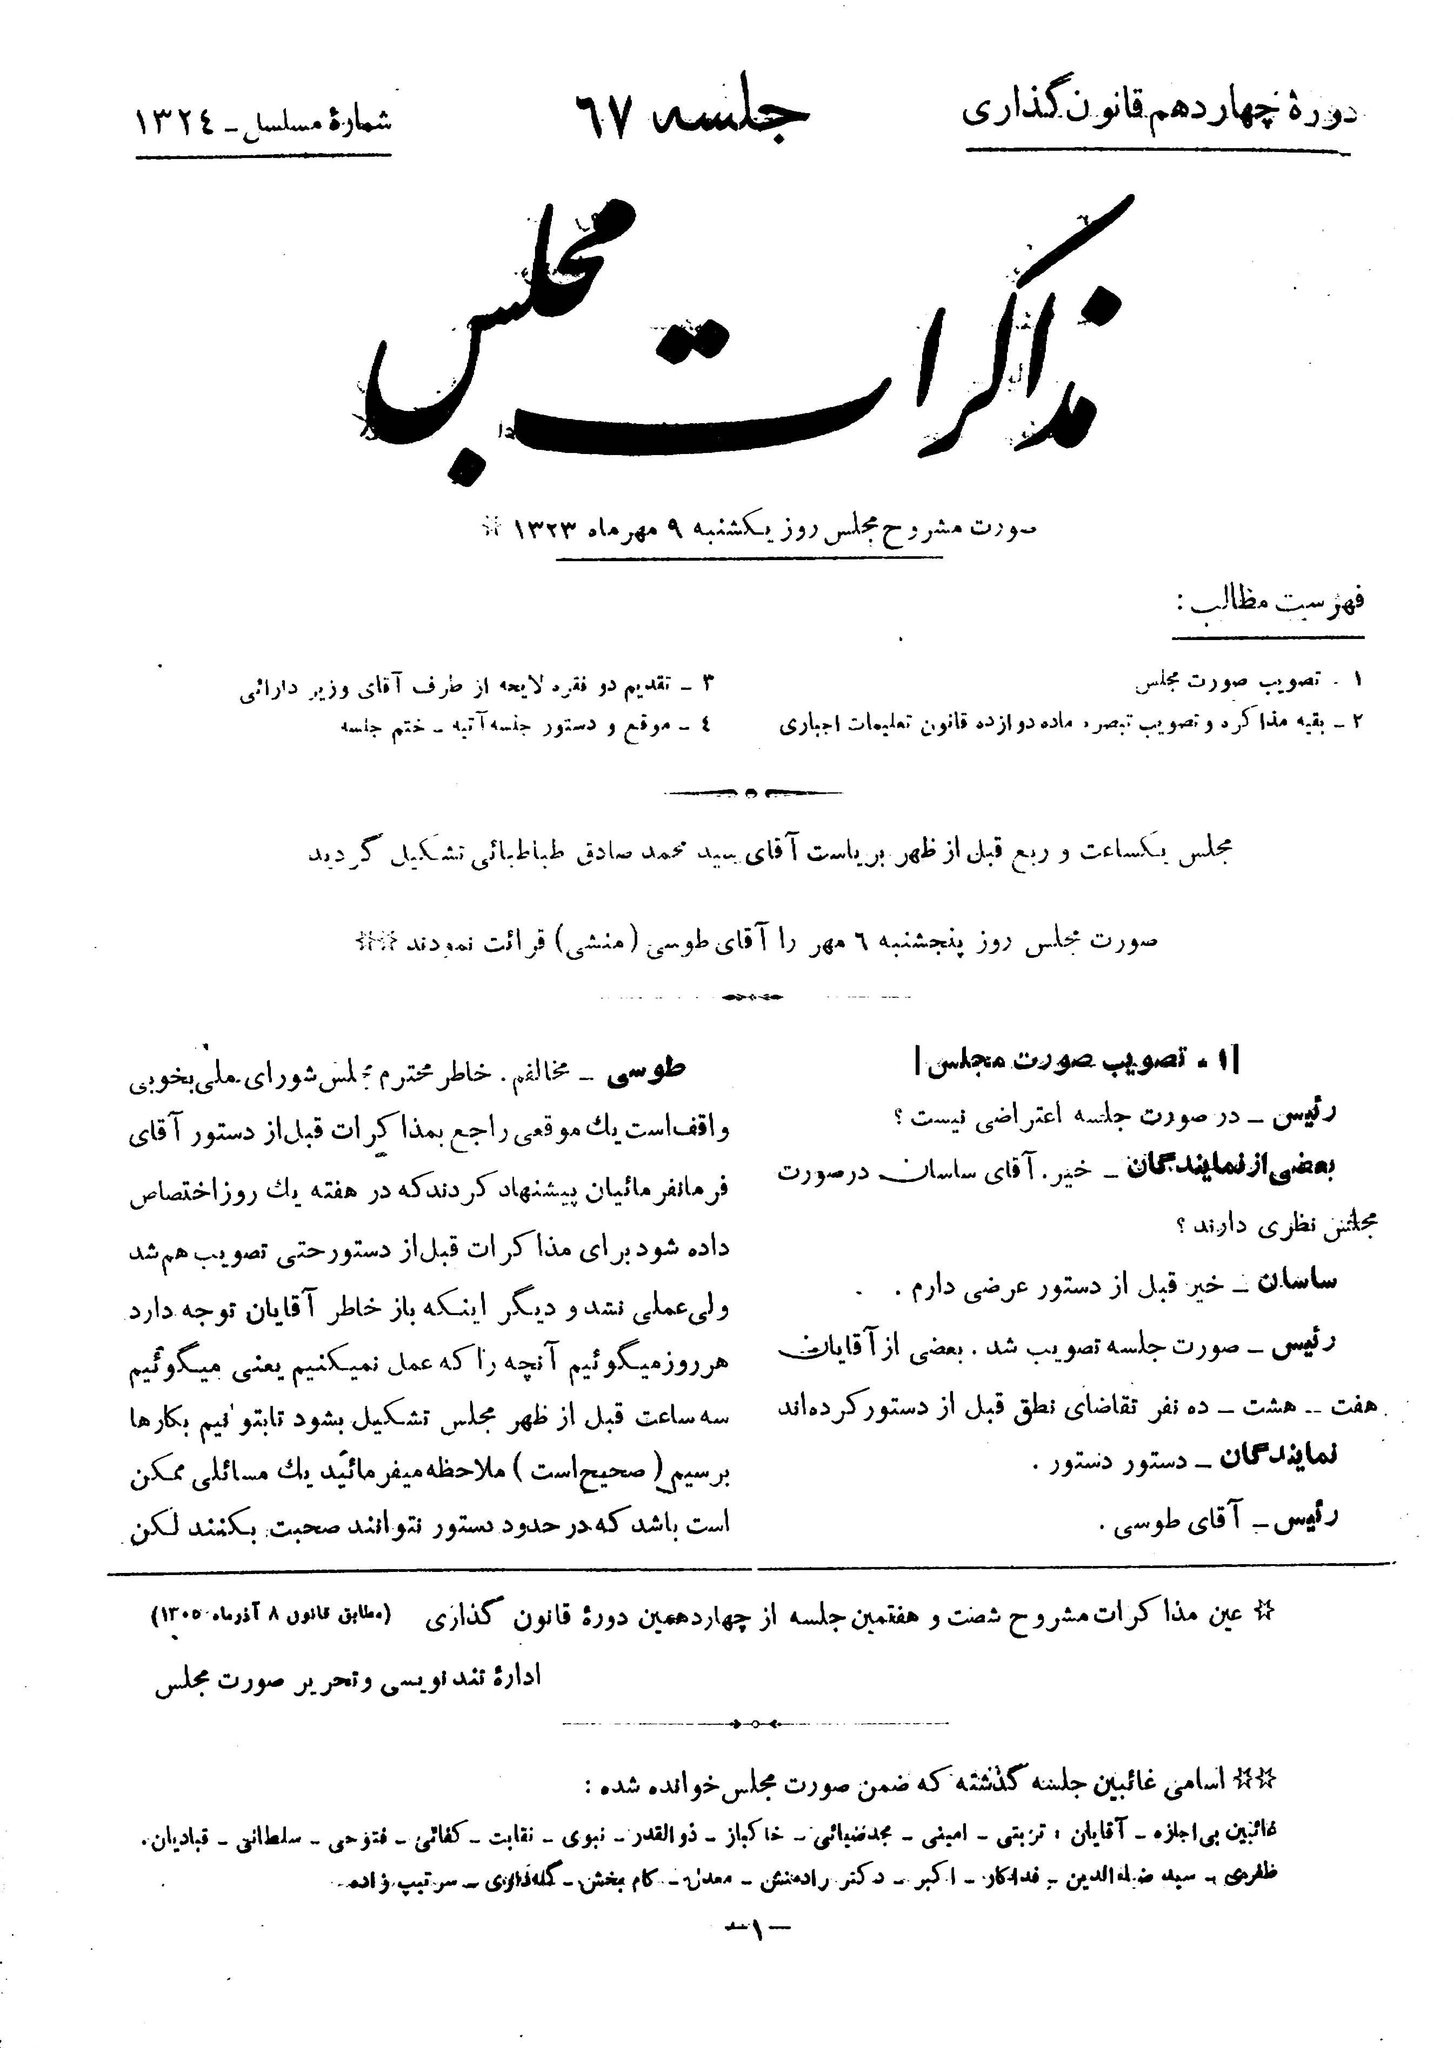 دورۀ چهاردهم قانون گذاری
جلسه ٦٧
شمارۀ مسلسل ـ ١٣٢٤
مذاکرات مجلس
صورت مشروح مجلس روز یکشنبه ٩ مهرماه ١٣٢٣ ☆
فهرست مطالب :
١ ـ تصویب صورت مجلس
٢ ـ بقیه مذاکره و تصویب تبصره ماده دوازده قانون تعلیمات اجباری
٣ ـ تقدیم دو فقره لایحه از طرف آقای وزیر دارائی
٤ ـ موقع و دستور جلسه آتیه ـ ختم جلسه
مجلس یکساعت و ربع قبل از ظهر بریاست آقای سید محمد صادق طباطبائی تشکیل گردید
صورت مجلس روز پنجشنبه ٦ مهر را آقای طوسی (منشی) قرائت نمودند ☆☆
١ ـ تصویب صورت مجلس
رئیس ـ در صورت جلسه اعتراضی نیست ؟
بعضی از نمایندگان ـ خیر. آقای ساسان درصورت
مجلس نظری دارند ؟
ساسان ـ خیر قبل از دستور عرضی دارم .
رئیس ـ صورت جلسه تصویب شد . بعضی از آقایان
هفت ـ هشت ـ ده نفر تقاضای نطق قبل از دستور کرده‌اند
نمایندگان ـ دستور دستور .
رئیس ـ آقای طوسی .
طوسی ـ مخالفم . خاطر محترم مجلس شورای ملی بخوبی
واقف است یك موقعی راجع بمذاکرات قبل از دستور آقای
فرمانفرمائیان پیشنهاد کردند که در هفته یك روز اختصاص
داده شود برای مذاکرات قبل از دستور حتی تصویب هم شد
ولی عملی نشد و دیگر اینکه باز خاطر آقایان توجه دارد
هر روز میگوئیم آنچه را که عمل نمیکنیم یعنی میگوئیم
سه ساعت قبل از ظهر مجلس تشکیل بشود تا بتوانیم بکارها
برسیم ( صحیح است ) ملاحظه میفرمائید یك مسائلی ممکن
است باشد که در حدود دستور نتوانند صحبت بکنند لکن
☆ عین مذاکرات مشروح شصت و هفتمین جلسه از چهاردهمین دورۀ قانون گذاری (مطابق قانون ٨ آذرماه ١٣٠٥)
ادارۀ تندنویسی و تحریر صورت مجلس
☆☆ اسامی غائبین جلسه گذشته که ضمن صورت مجلس خوانده شده :
غائبین بی‌اجازه ـ آقایان : تربتی ـ امینی ـ مجدضیائی ـ خاکباز ـ ذوالقدر ـ نبوی ـ نقابت ـ کفائی ـ فتوحی ـ سلطانی ـ قبادیان .
ظفری ـ سید ضیاءالدین ـ فداکار ـ اکبر ـ دکتر رادمنش ـ معدل ـ کام بخش ـ گله‌داری ـ سرتیپ زاده .
ـ ١ ـ